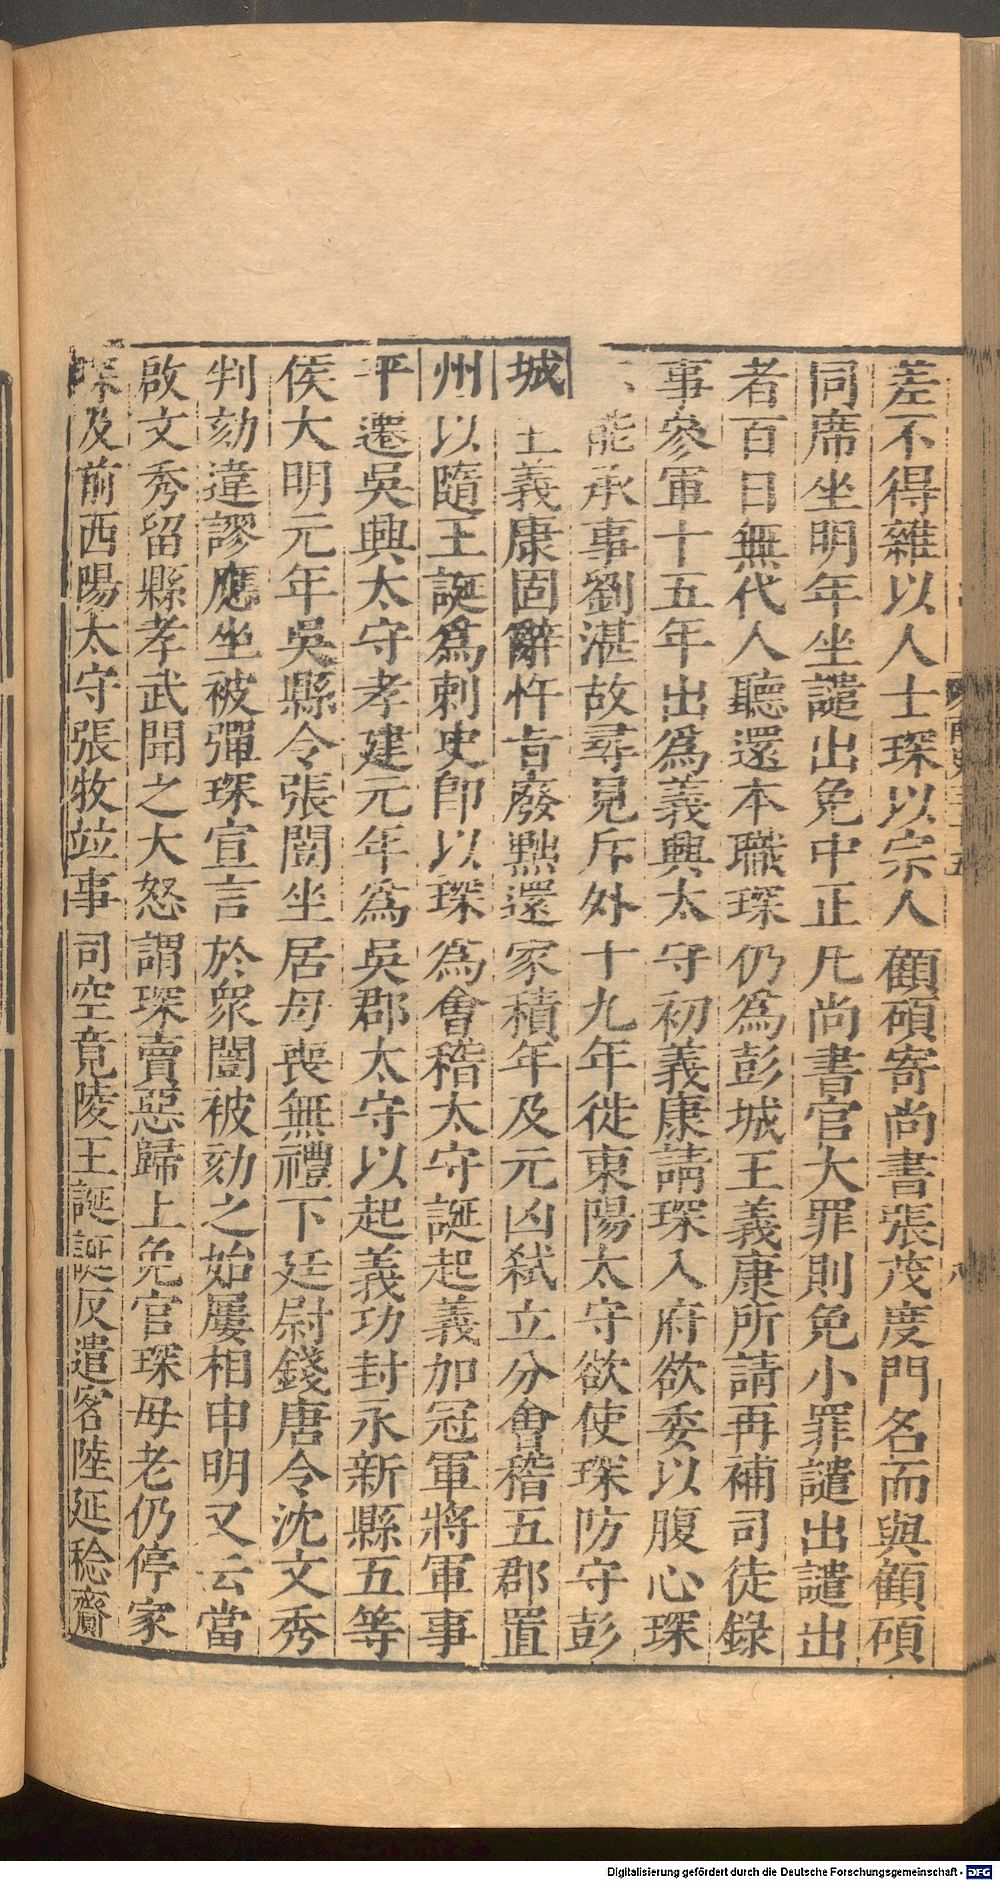 差不得雜以人士琛以宗人顧碩寄尚書張茂度門名而與顧碩
同席坐明年坐譴出免中正凡尚書官大罪則免小罪譴出譴出
者百日無代人聽還本職琛仍為彭城王義康所請再補司徒錄
事參軍十五年出為義興太守初義康請琛入府欲委以腹心琛
能承事劉湛故尋見斥外十九年徙東陽太守欲使琛防守彭
城王義康固辭忤旨廢黜還家積年及元凶弒立分會稽五郡置
州以隨王誕為刺史即以琛為會稽太守誕起義加冠軍將軍事
平遷吳興太守孝建元年為吳郡太守以起義功封永新縣五等
侯大明元年吳縣令張闓坐居母喪無禮下廷尉錢唐令沈文秀
判劾違謬應坐被彈琛宣言於衆闓被劾之始屢相申明又云當
啟文秀留縣孝武聞之大怒謂琛賣惡歸上免官琛母老仍停家
琛及前西陽太守張牧竝事司空竟陵王誕誕反遣客陸延稔齎
Digitalisierung gefördert durch die Deutsche Forschungsgemeinschaft - DFG